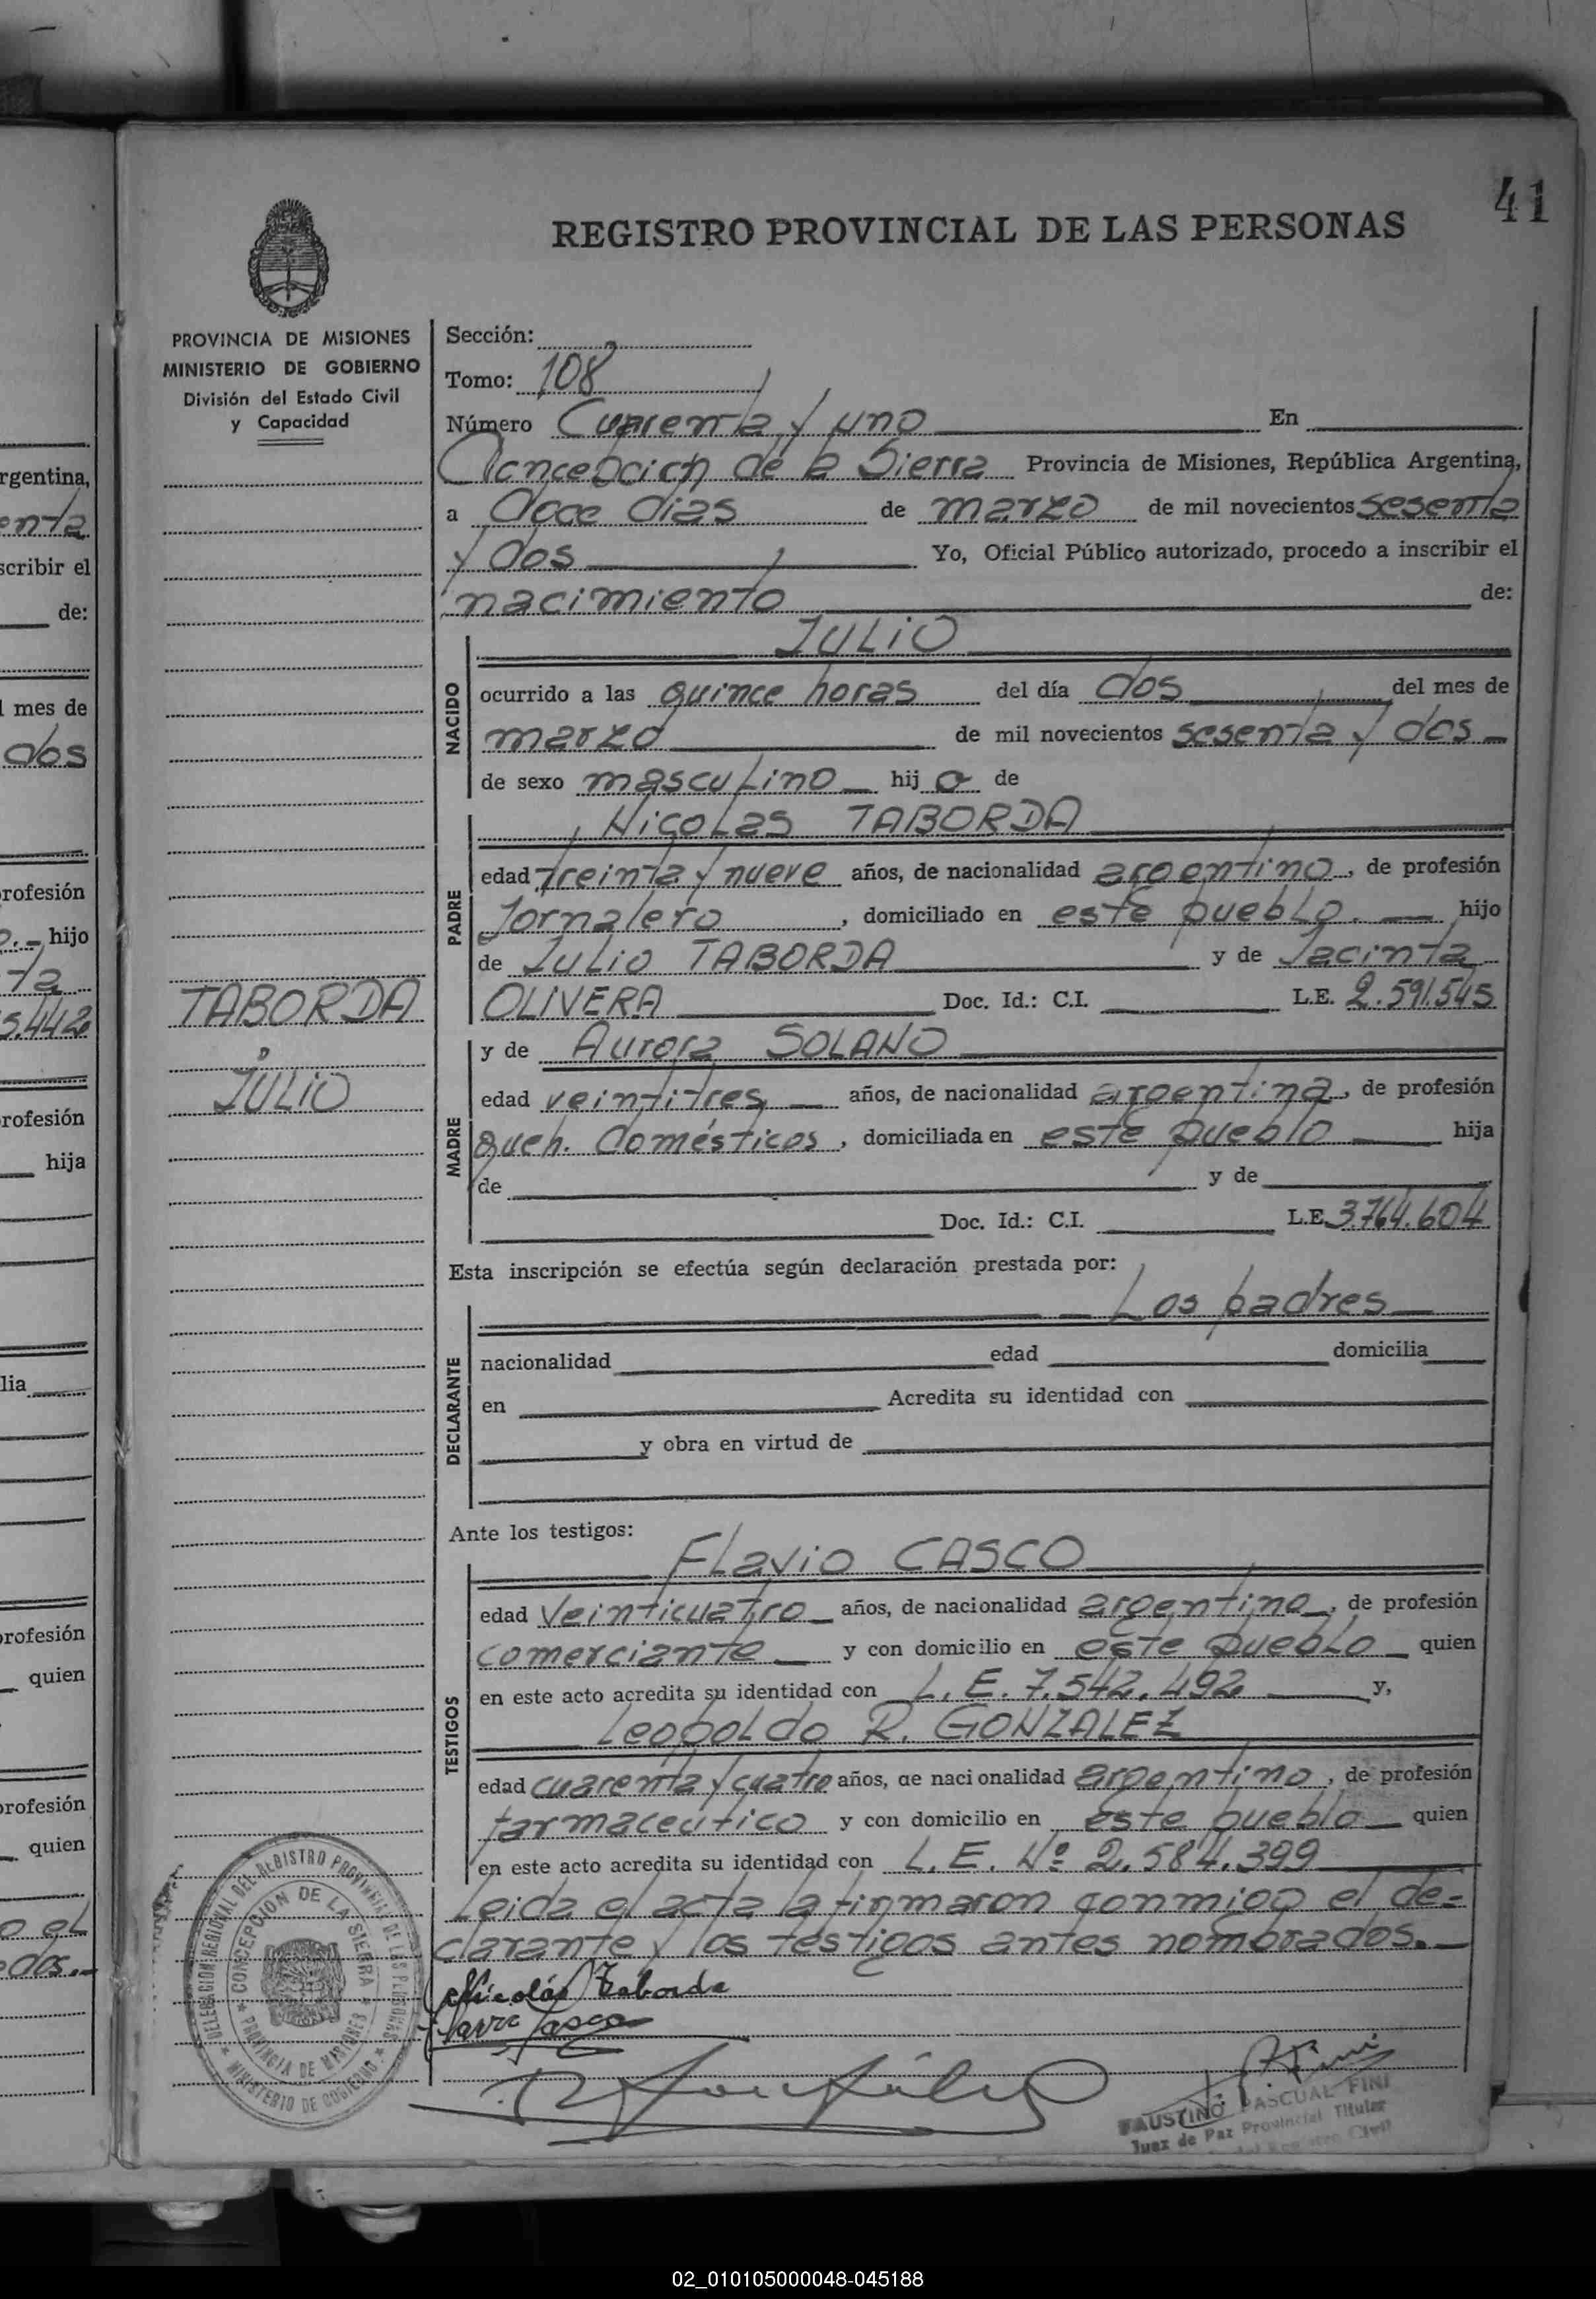 41
REGISTRO PROVINCIAL DE LAS PERSONAS
PROVINCIA DE MISIONES
MINISTERIO DE GOBIERNO
División del Estado Civil
y Capacidad
TABORDA
JULIO
Sección:
Tomo: 108
Número Cuarenta y uno En
Concepcion de la Sierra Provincia de Misiones, República Argentina,
a doce dias de marzo de mil novecientos sesenta
y dos Yo, Oficial Público autorizado, procedo a inscribir el
nacimiento de:
NACIDO
JULIO
ocurrido a las quince horas del día dos del mes de
marzo de mil novecientos sesenta y dos
de sexo masculino hij o de
PADRE
Nicolas TABORDA
edad treinta y nueve años, de nacionalidad argentino, de profesión
Jornalero, domiciliado en este pueblo. hijo
de Julio TABORDA y de Jacinta
OLIVERA Doc. Id.: C.I. L.E. 2.591.545
MADRE
y de Aurora SOLANO
edad veintitres años, de nacionalidad argentina, de profesión
queh. domésticos, domiciliada en este pueblo hija
de y de
Doc. Id.: C.I. L.E. 3.764.604
Esta inscripción se efectúa según declaración prestada por:
DECLARANTE
Los padres
nacionalidad edad domicilia
en Acredita su identidad con
y obra en virtud de
Ante los testigos:
TESTIGOS
Flavio CASCO
edad veinticuatro años, de nacionalidad argentino, de profesión
comerciante y con domicilio en este pueblo quien
en este acto acredita su identidad con L. E. 7.542.492 y,
Leopoldo R. GONZALEZ
edad cuarenta y cuatro años, de nacionalidad argentino, de profesión
farmaceútico y con domicilio en este pueblo quien
en este acto acredita su identidad con L. E. Nº 2.584.399
Leida el acta la firmaron conmigo el de=
clarante y los testigos antes nombrados.
Nicolás Taborda
DELEGACION REGIONAL DEL REGISTRO PROVINCIAL DE LAS PERSONAS
CONCEPCION DE LA SIERRA
PROVINCIA DE MISIONES
MINISTERIO DE GOBIERNO
FAUSTINO PASCUAL FINI
Juez de Paz Provincial Titular
rgentina,
enta
scribir el
de:
l mes de
dos
rofesión
hijo
ta
5.442
rofesión
hija
lia
rofesión
quien
rofesión
quien
o el
dos.
02_010105000048-045188